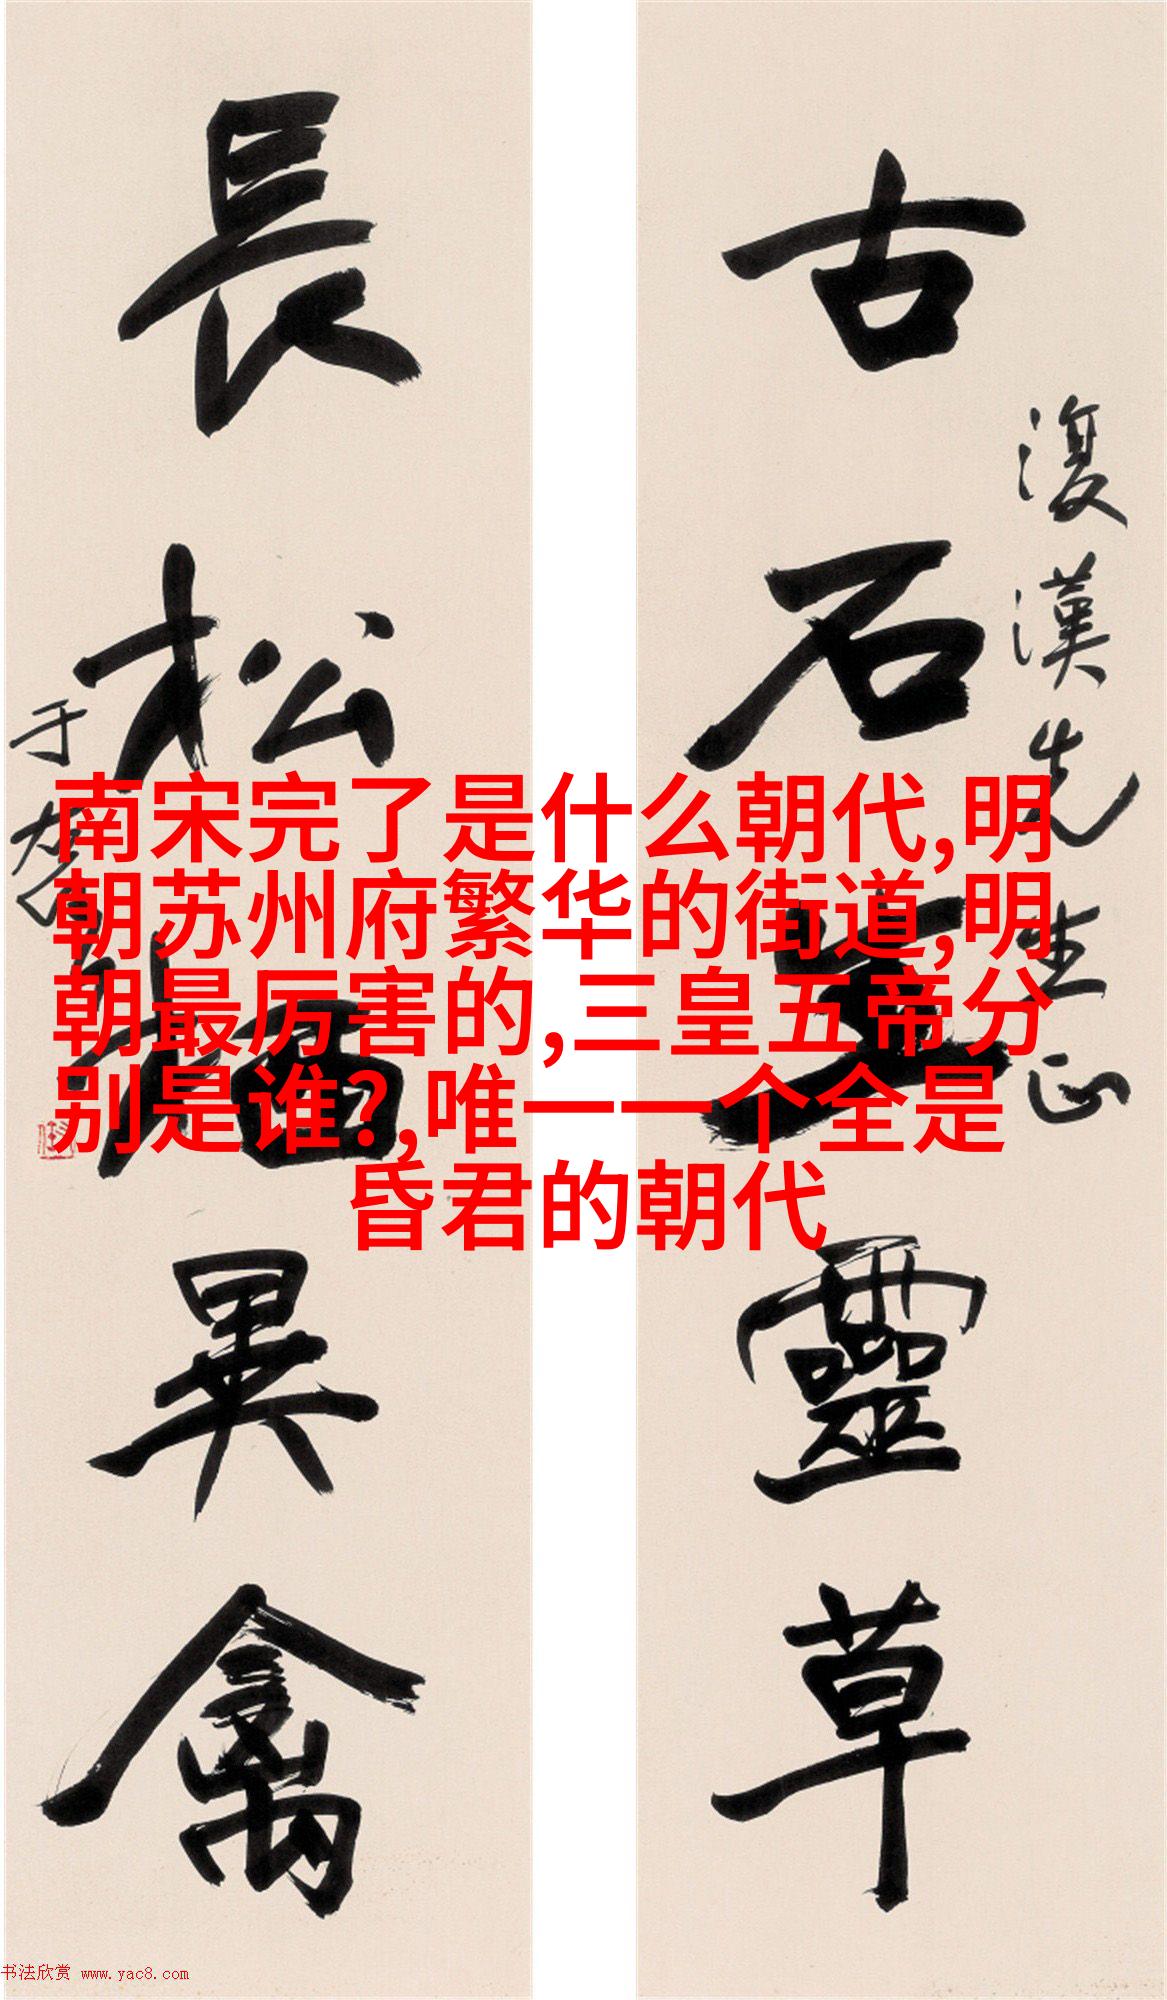 古石生靈草
復漢先生正
長松栖異禽
于右任
南宋完了是什么朝代,明
朝苏州府繁华的街道,明
朝最厉害的,三皇五帝分
别是谁?,唯一一个全是
昏君的朝代
书法欣赏 www.yac8.com